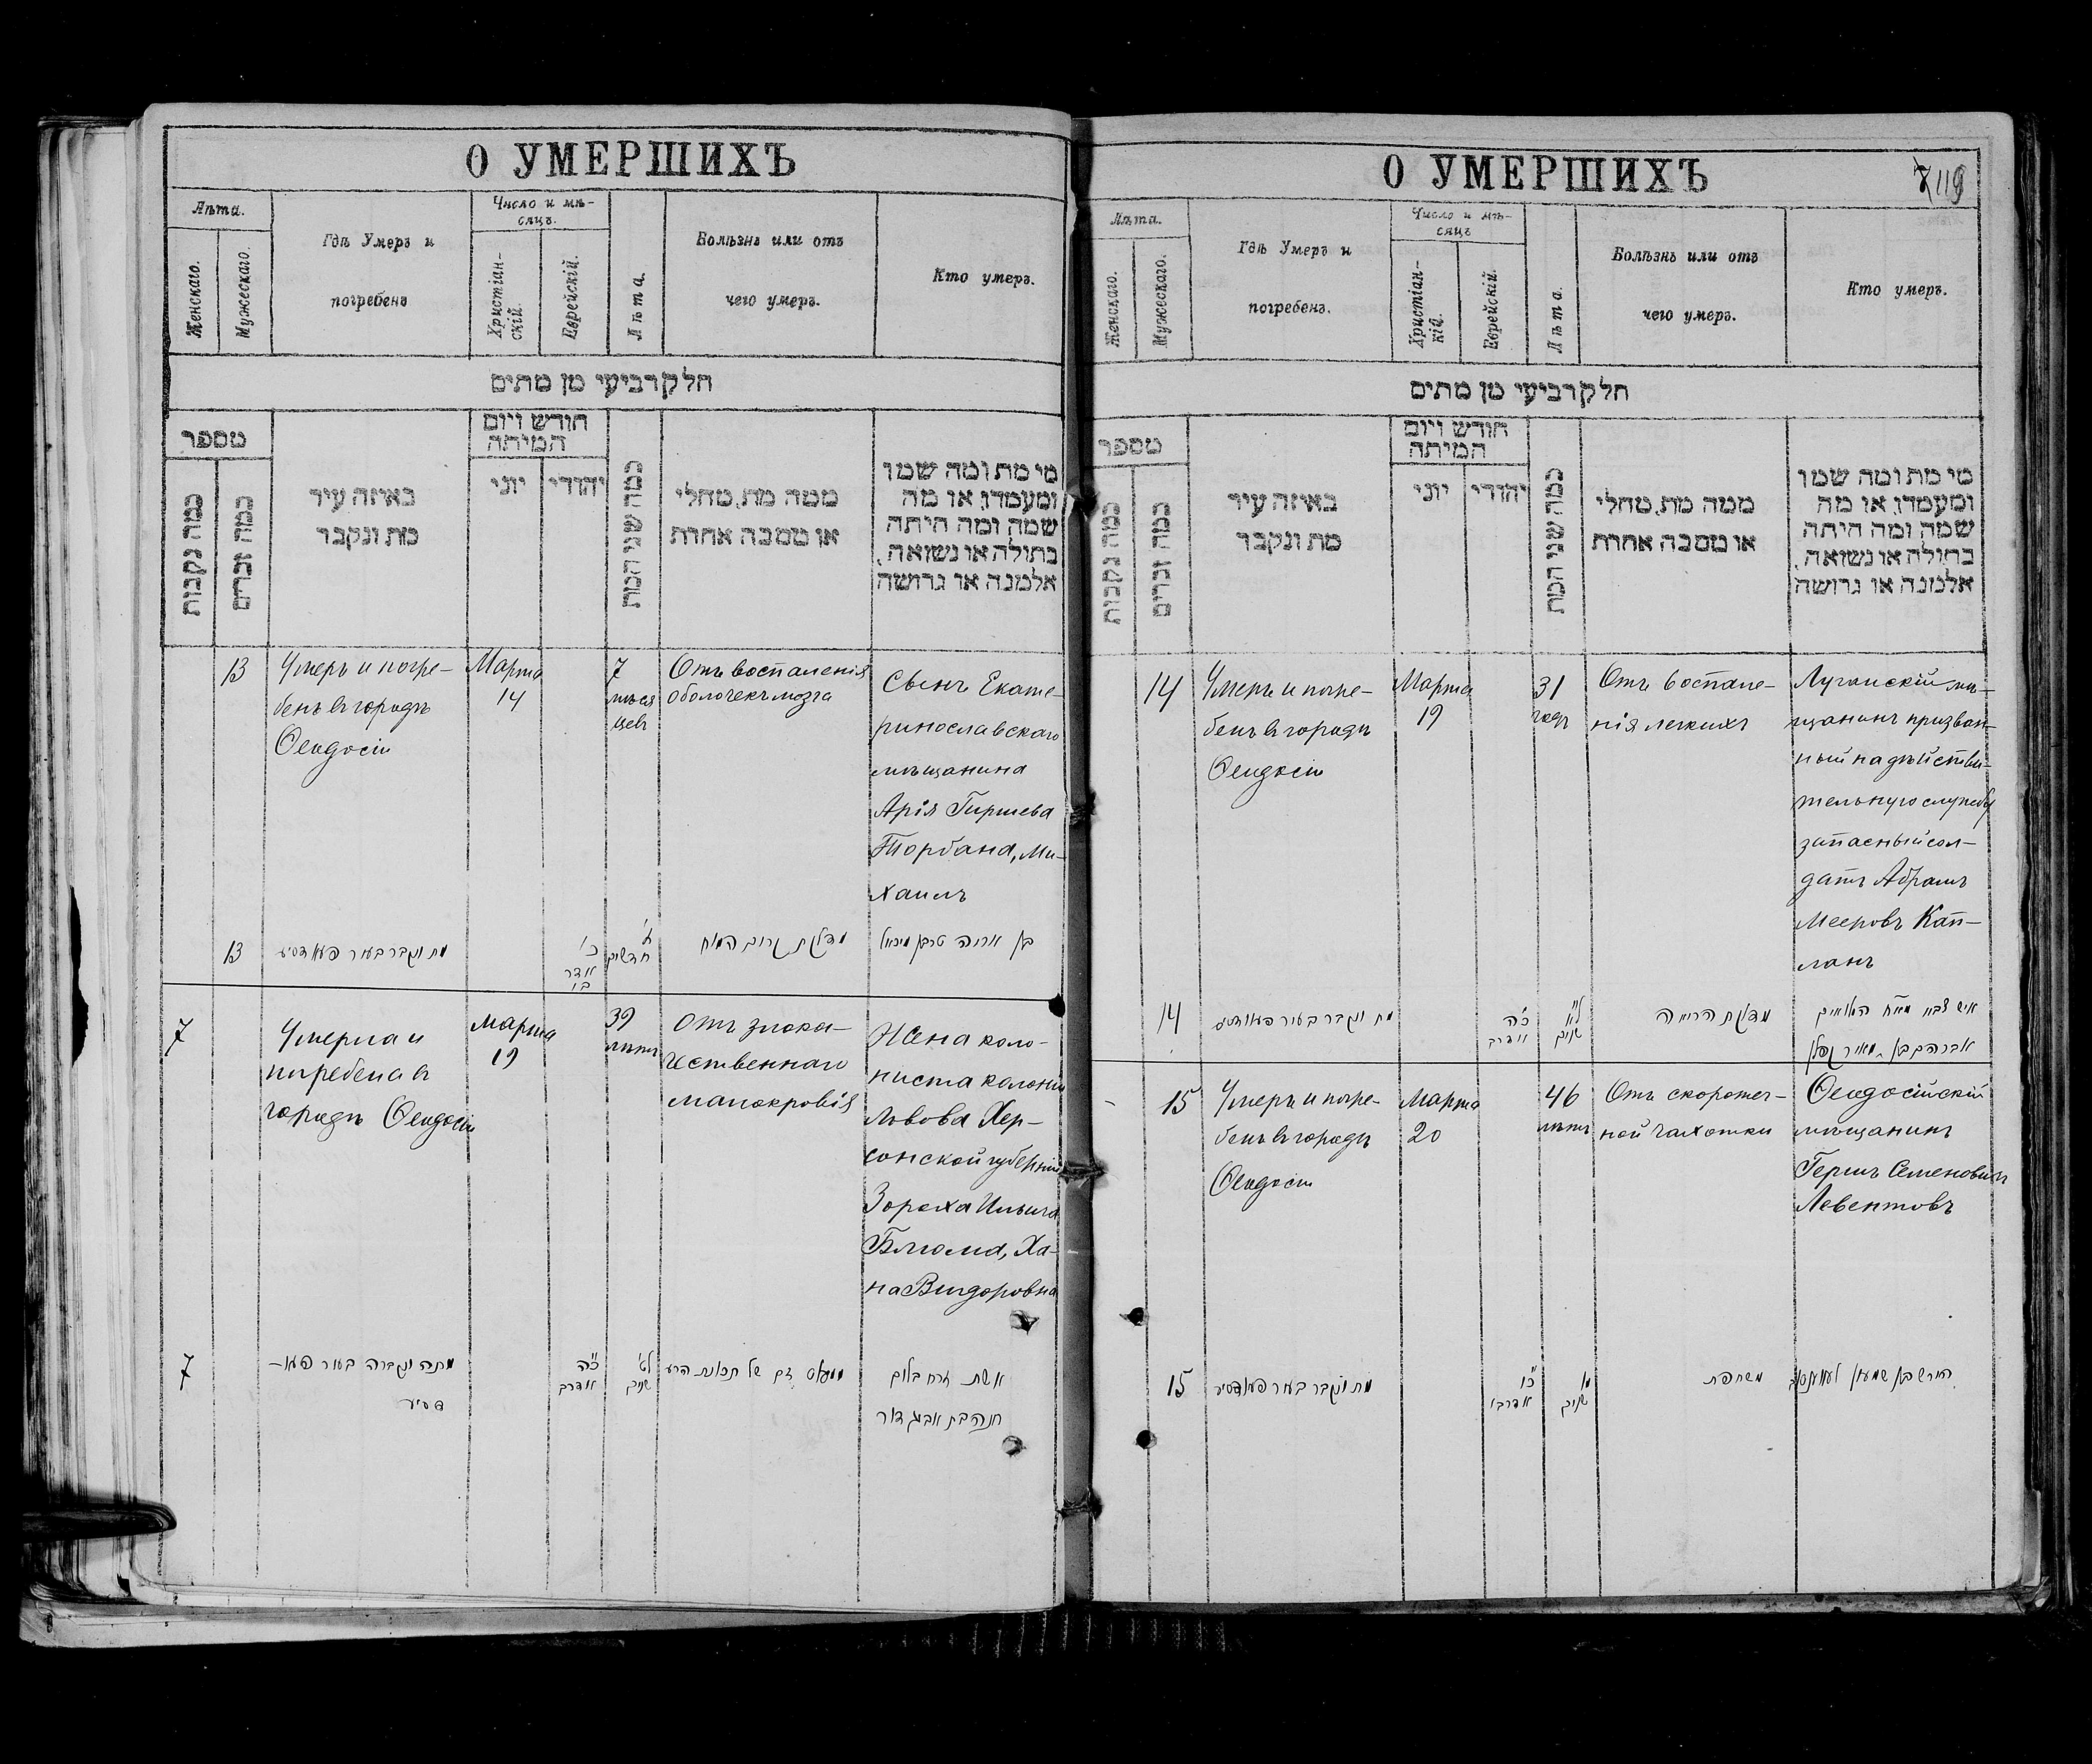 О УМЕРШИХЪ
Лѣта.
Женскаго.
Мужескаго.
Гдѣ Умеръ и
погребенъ
Число и мѣ-
сяцъ.
Христіан-
скій.
Еврейскій.
Лѣта.
Болѣзнь или отъ
чего умеръ.
Кто умеръ.
חלק רביעי מן מתים
מספר
כמה נקבות
כמה זכרים
באיזה עיר
מת ונקבר
חודש ויום
המיתה
יוני
יהודי
כמה שני המת
ממה מת, מחלי
או מסבה אחרת
מי מת ומה שמו
ומעמדו, או מה
שמה ומה היתה
בתולה או נשואה,
אלמנה או גרושה
13
Умеръ и погре-
бенъ въ городѣ
Ѳеодосіи
Марта
14
7
мѣся
цев
Отъ воспаленія
оболочекъ мозга
Сынъ Екате-
ринославскаго
мѣщанина
Арія Гиршева
Торбана, Ми-
хаилъ
13
מת ונקבר בעיר פעאדסיע
כ׳
אדר
חדשים
מדלקת קרום המוח
בן אריה טרבן מיכאל
7
Умерла и
погребена въ
городѣ Ѳеодосіи
Марта
19
39
лѣтъ
Отъ злока-
чественнаго
малокровія
Жена коло-
ниста колоніи
Львова Хер-
сонской губерніи
Зораха Ильича
Блюма, Ха-
на Вигдоровна
7
מתה ונקברה בעיר פעא-
דסיע
כ״ה
שנים
דם של תכונת הרע
אשת זרח בלום
חנה בת אביגדור
О УМЕРШИХЪ
119
Лѣта.
Женскаго.
Мужескаго.
Гдѣ Умеръ и
погребенъ.
Число и мѣ-
сяцъ
Христіан-
кій.
Еврейскій.
Лѣта.
Болѣзнь или отъ
чего умеръ.
Кто умеръ.
חלק רביעי מן מתים
מספר
כמה נקבות
כמה זכרים
באיזה עיר
מת ונקבר
חודש ויום
המיתה
יוני
יהודי
כמה שני המת
ממה מת, מחלי
או מסבה אחרת
מי מת ומה שמו
ומעמדו, או מה
שמה ומה היתה
בתולה או נשואה,
אלמנה או גרושה
14
Умеръ и погре-
бенъ въ городѣ
Ѳеодосіи
Марта
19
31
годъ
Отъ воспале-
нія легкихъ
Луганскій мѣ-
щанинъ призван-
ный на дѣйстви-
тельную службу
запасный сол-
датъ Абрамъ
Мееровъ Кап-
ланъ
14
מת ונקבר בעיר פעאדסיע
כ״ה
ל״א
שנים
מדלקת הריאה
איש צבא
אברהם בן מאיר קפלן
15
Умеръ и погре-
бенъ въ городѣ
Ѳеодосіи
Марта
20
46
лѣтъ
Отъ скоротеч-
ной чахотки
Ѳеодосійскій
мѣщанинъ
Гершъ Семеновичъ
Левентовъ
15
מת ונקבר בעיר פעאדסיע
כ״ו
שנים
משחפת
הירש בן שמעון לעווענטאוו